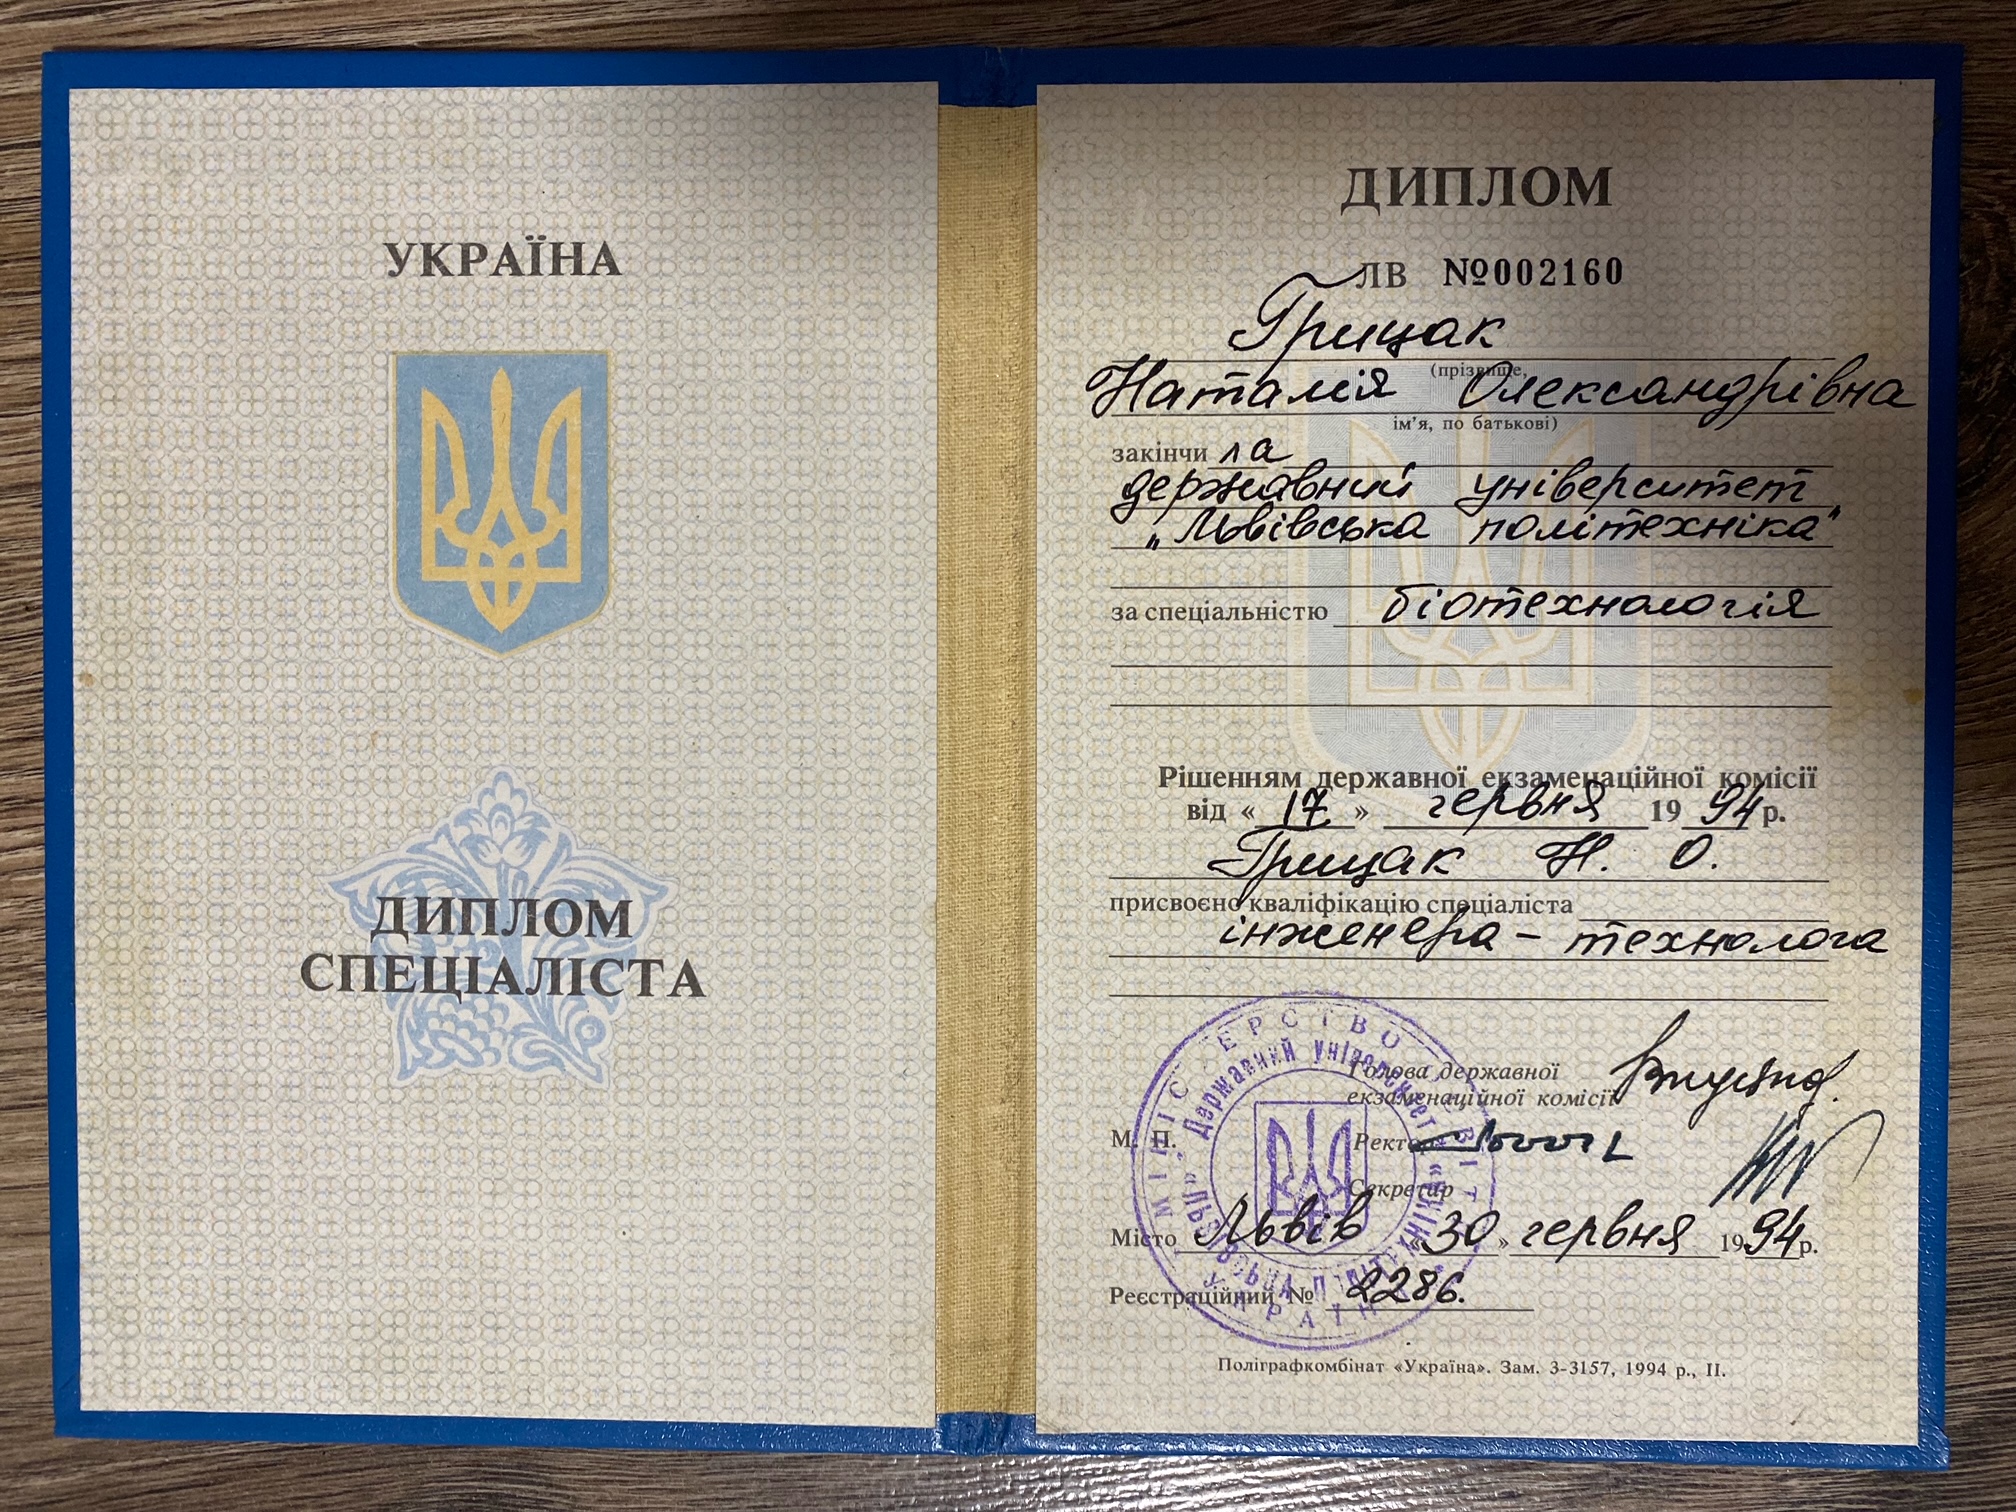 УКРАЇНА
ДИПЛОМ
СПЕЦІАЛІСТА
ДИПЛОМ
ЛВ №002160
Грицак
(прізвище,
Наталія Олександрівна
ім'я, по батькові)
закінчи ла
Державний університет
"Львівська політехніка"
за спеціальністю біотехнологія
Рішенням державної екзаменаційної комісії
від « 17 » червня 19 94 р.
Грицак Н. О.
присвоєно кваліфікацію спеціаліста
інженера-технолога
Голова державної
екзаменаційної комісії
М. П. Ректор
Секретар
Місто Львів « 30 » червня 19 94 р.
Реєстраційний № 8286.
Поліграфкомбінат «Україна». Зам. 3-3157, 1994 р., II.